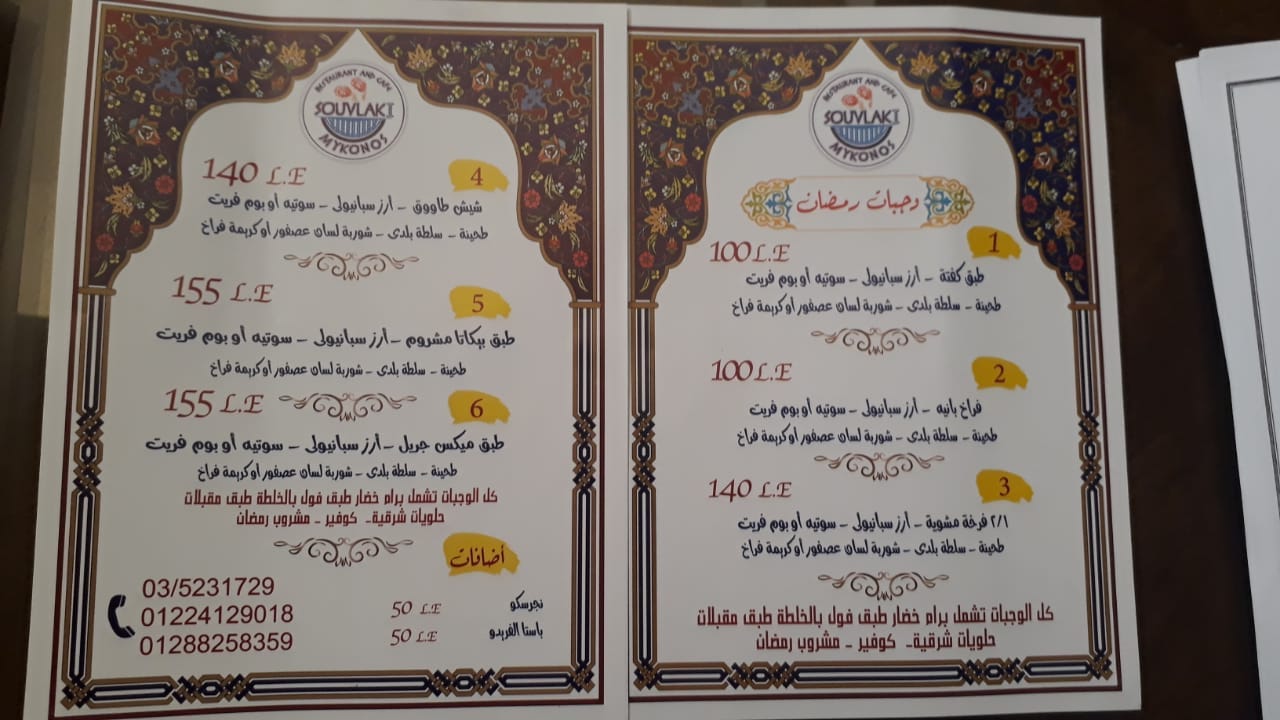 RESTAURANT AND CAFE
SOUVLAKI
MYKONOS
وجبات رمضان
1
100 L.E
طبق كفتة - أرز سبانيولى - سوتيه أو بوم فريت
طحينة - سلطة بلدى - شوربة لسان عصفور أو كريمة فراخ
2
100 L.E
فراخ بانيه - أرز سبانيولى - سوتيه أو بوم فريت
طحينة - سلطة بلدى - شوربة لسان عصفور أو كريمة فراخ
3
140 L.E
٢/١ فرخة مشوية - أرز سبانيولى - سوتيه أو بوم فريت
طحينة - سلطة بلدى - شوربة لسان عصفور أو كريمة فراخ
كل الوجبات تشمل برام خضار طبق فول بالخلطة طبق مقبلات
حلويات شرقية - كوفير - مشروب رمضان
RESTAURANT AND CAFE
SOUVLAKI
MYKONOS
4
140 L.E
شيش طاووق - أرز سبانيولى - سوتيه أو بوم فريت
طحينة - سلطة بلدى - شوربة لسان عصفور أو كريمة فراخ
5
155 L.E
طبق بيكاتا مشروم - أرز سبانيولى - سوتيه أو بوم فريت
طحينة - سلطة بلدى - شوربة لسان عصفور أو كريمة فراخ
6
155 L.E
طبق ميكس جريل - أرز سبانيولى - سوتيه أو بوم فريت
طحينة - سلطة بلدى - شوربة لسان عصفور أو كريمة فراخ
كل الوجبات تشمل برام خضار طبق فول بالخلطة طبق مقبلات
حلويات شرقية - كوفير - مشروب رمضان
أضافات
نجرسكو 50 L.E
باستا الفريدو 50 L.E
03/5231729
01224129018
01288258359